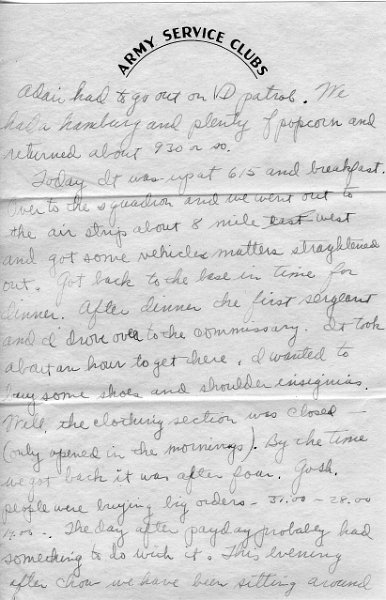 ARMY SERVICE CLUBS
Adair had to go out on VD patrol. We
had a hamburg and plenty of popcorn and
returned about 930 or so.
Today It was up at 615 and breakfast.
Over to the squadron and we went out to
the air strip about 8 mile east west
and got some vehicles matters straghtened
out. Got back to the base in time for
dinner. After dinner the first sergeant
and I drove over to the commissary. It took
about an hour to get there. I wanted to
buy some shoes and shoulder insignias.
Well, the clothing section was closed -
(only opened in the mornings). By the time
we got back it was after four. Gosh,
people were buying big orders - 30.00 - 28.00
The day after payday probaley had
something to do with it. This evening
after chow we have been sitting around